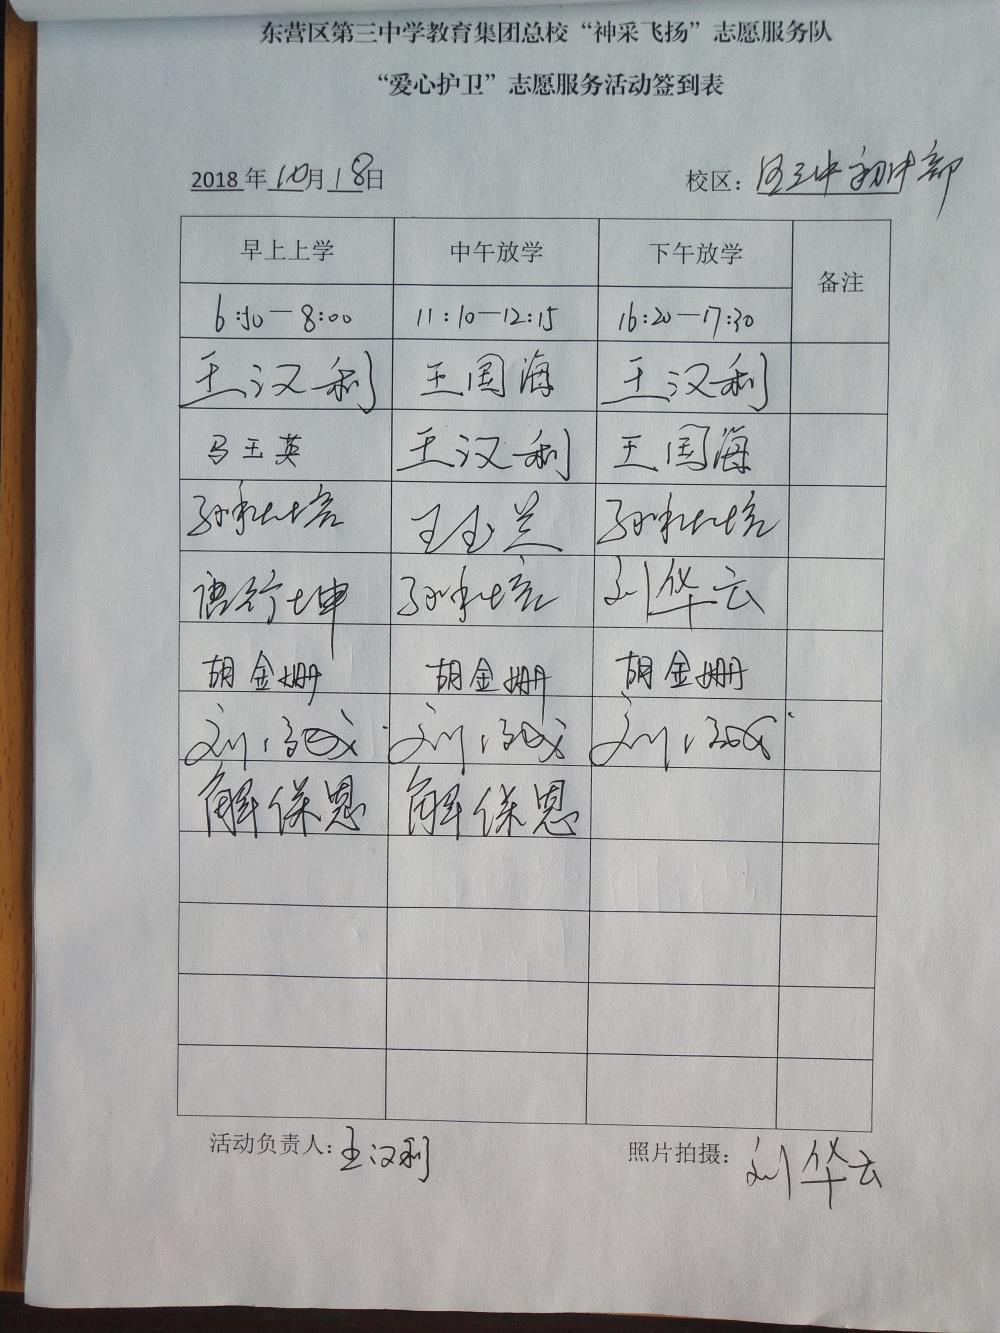 东营区第三中学教育集团总校“神采飞扬”志愿服务队
“爱心护卫”志愿服务活动签到表
2018年10月18日 校区：区三中初中部
早上上学 中午放学 下午放学 备注
6:50—8:00 11:10—12:15 16:20—17:30
王汉利 王国海 王汉利
马玉英 王汉利 王国海
王玉兰
刘华云
胡金姗 胡金姗 胡金姗
解保恩 解保恩
活动负责人：王汉利 照片拍摄：刘华云